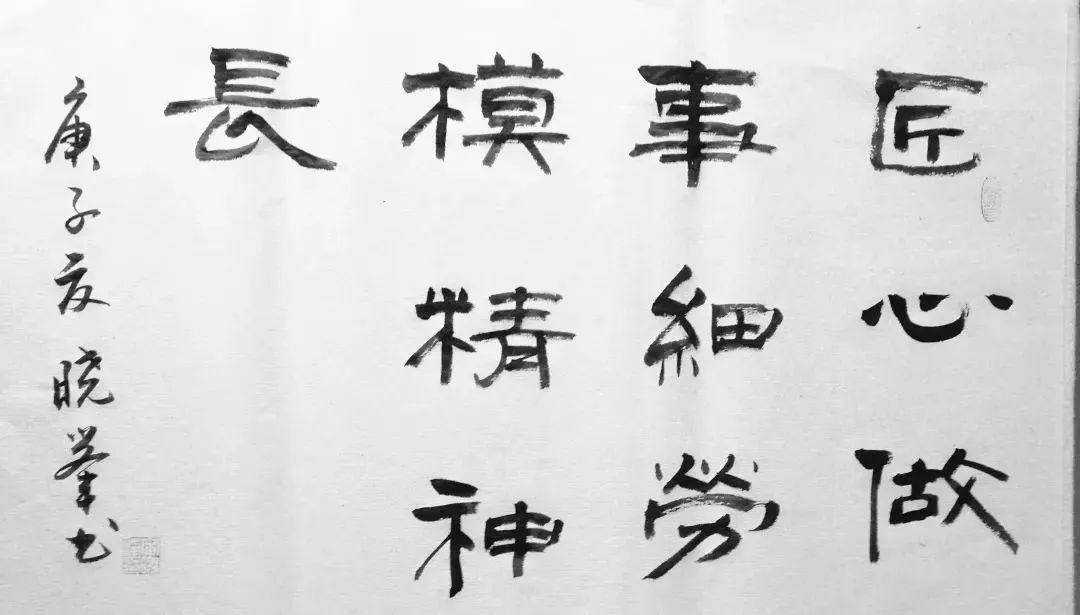 匠心做
事細勞
模精神
長
庚子夏 晓峯书